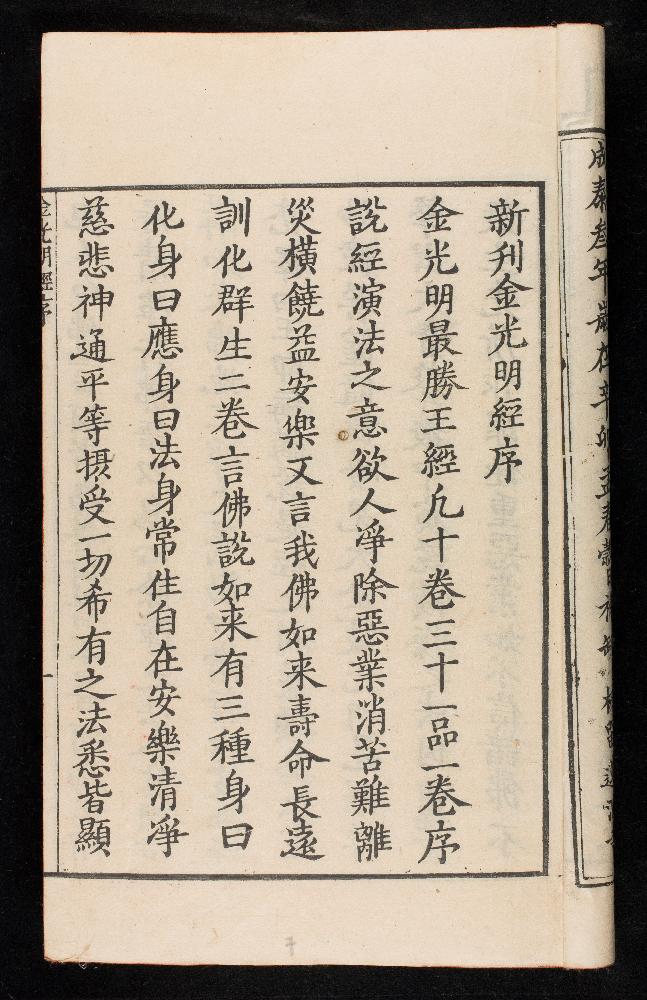 成泰叁年歲在辛卯孟春
新刋金光明經序
金光明最勝王經凢十卷三十一品一卷序
說經演法之意欲人淨除惡業消苦難離
災橫饒益安樂又言我佛如来壽命長遠
訓化群生二卷言佛說如来有三種身曰
化身曰應身曰法身常住自在安樂清淨
慈悲神通平等摄受一切希有之法悉皆顯
金光明經序
一